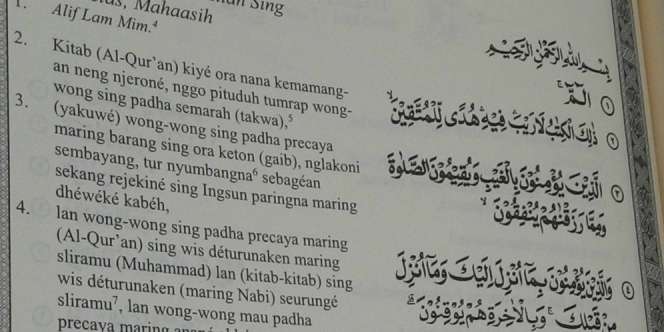 Mahaasih
Sing
1. Alif Lam Mim.⁴
2. Kitab (Al-Qur'an) kiyé ora nana kemamang-
an neng njeroné, nggo pituduh tumrap wong-
wong sing padha semarah (takwa),⁵
3. (yakuwé) wong-wong sing padha precaya
maring barang sing ora keton (gaib), nglakoni
sembayang, tur nyumbangna⁶ sebagéan
sekang rejekiné sing Ingsun paringna maring
dhéwéké kabéh,
4. lan wong-wong sing padha precaya maring
(Al-Qur'an) sing wis déturunaken maring
sliramu (Muhammad) lan (kitab-kitab) sing
wis déturunaken (maring Nabi) seurungé
sliramu⁷, lan wong-wong mau padha
precaya maring
بِسْمِ اللّٰهِ الرَّحْمٰنِ الرَّحِيْمِ
الۤمّۤ ۚ ١
ذٰلِكَ الْكِتٰبُ لَا رَيْبَ ۛ فِيْهِ ۛ هُدًى لِّلْمُتَّقِيْنَ ۙ ٢
الَّذِيْنَ يُؤْمِنُوْنَ بِالْغَيْبِ وَيُقِيْمُوْنَ الصَّلٰوةَ
وَمِمَّا رَزَقْنٰهُمْ يُنْفِقُوْنَ ۙ ٣
وَالَّذِيْنَ يُؤْمِنُوْنَ بِمَآ اُنْزِلَ اِلَيْكَ وَمَآ اُنْزِلَ
مِنْ قَبْلِكَ ۚ وَبِالْاٰخِرَةِ هُمْ يُوْقِنُوْنَ ۗ ٤